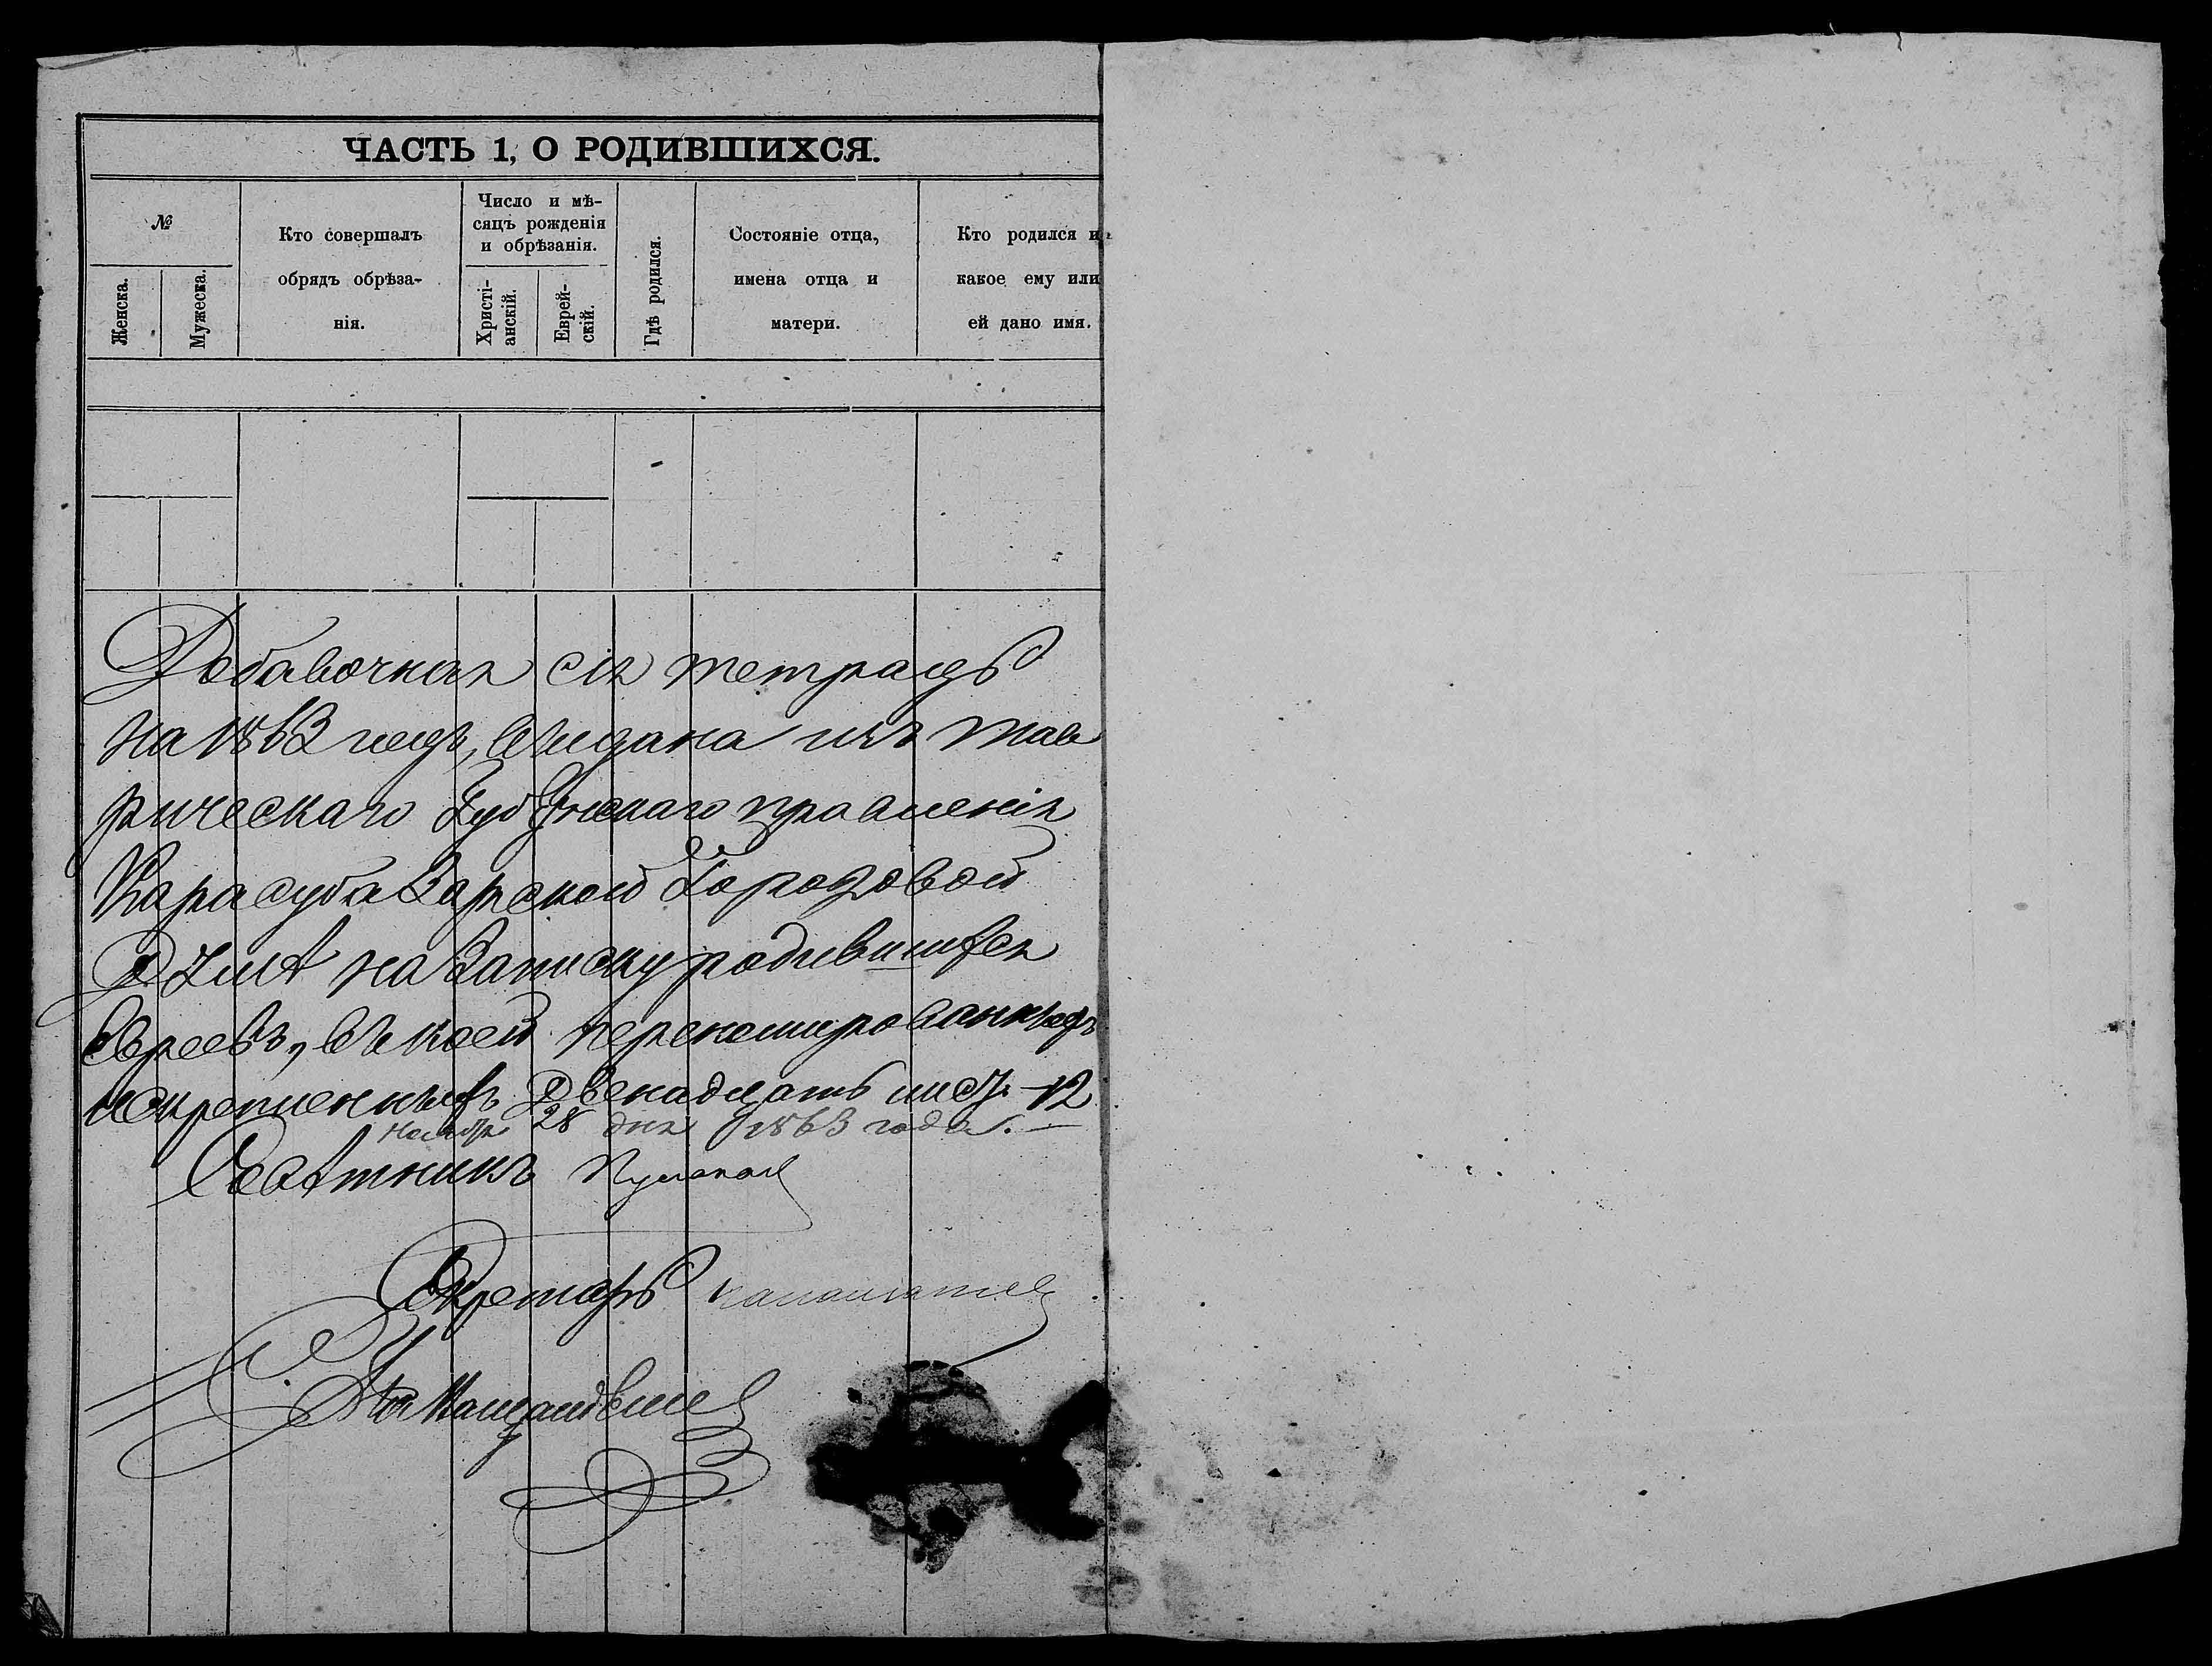 ЧАСТЬ 1, О РОДИВШИХСЯ.
№
Женска.
Мужеска.
Кто совершалъ
обрядъ обрѣза-
нія.
Число и мѣ-
сяцъ рожденія
и обрѣзанія.
Христі-
анскій.
Еврей-
скій.
Гдѣ родился.
Состояніе отца,
имена отца и
матери.
Кто родился и
какое ему или
ей дано имя.
Добавочная сія тетрадь
на 1863 годъ, выдана изъ Тав
рическаго Губернскаго правленія
Карасубазарской Городовой
Думѣ на записку родившихся
Евреевъ, въ коей перенумерованныхъ
и скрепленныхъ Двенадцать лист. 12
Ноября 28 дня 1863 года.
Советникъ
Секретарь